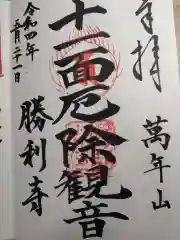 奉拝
萬年山
十一面厄除観音
勝利寺
令和四年
五月二十一日